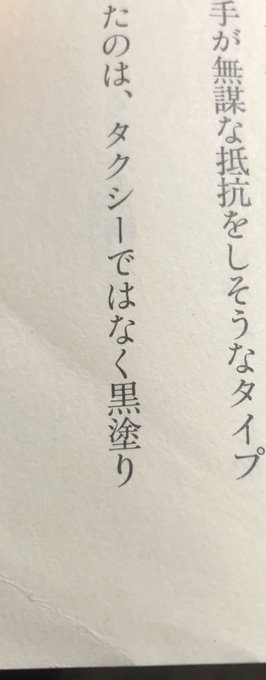 手が無謀な抵抗をしそうなタイプ
たのは、タクシーではなく黒塗り